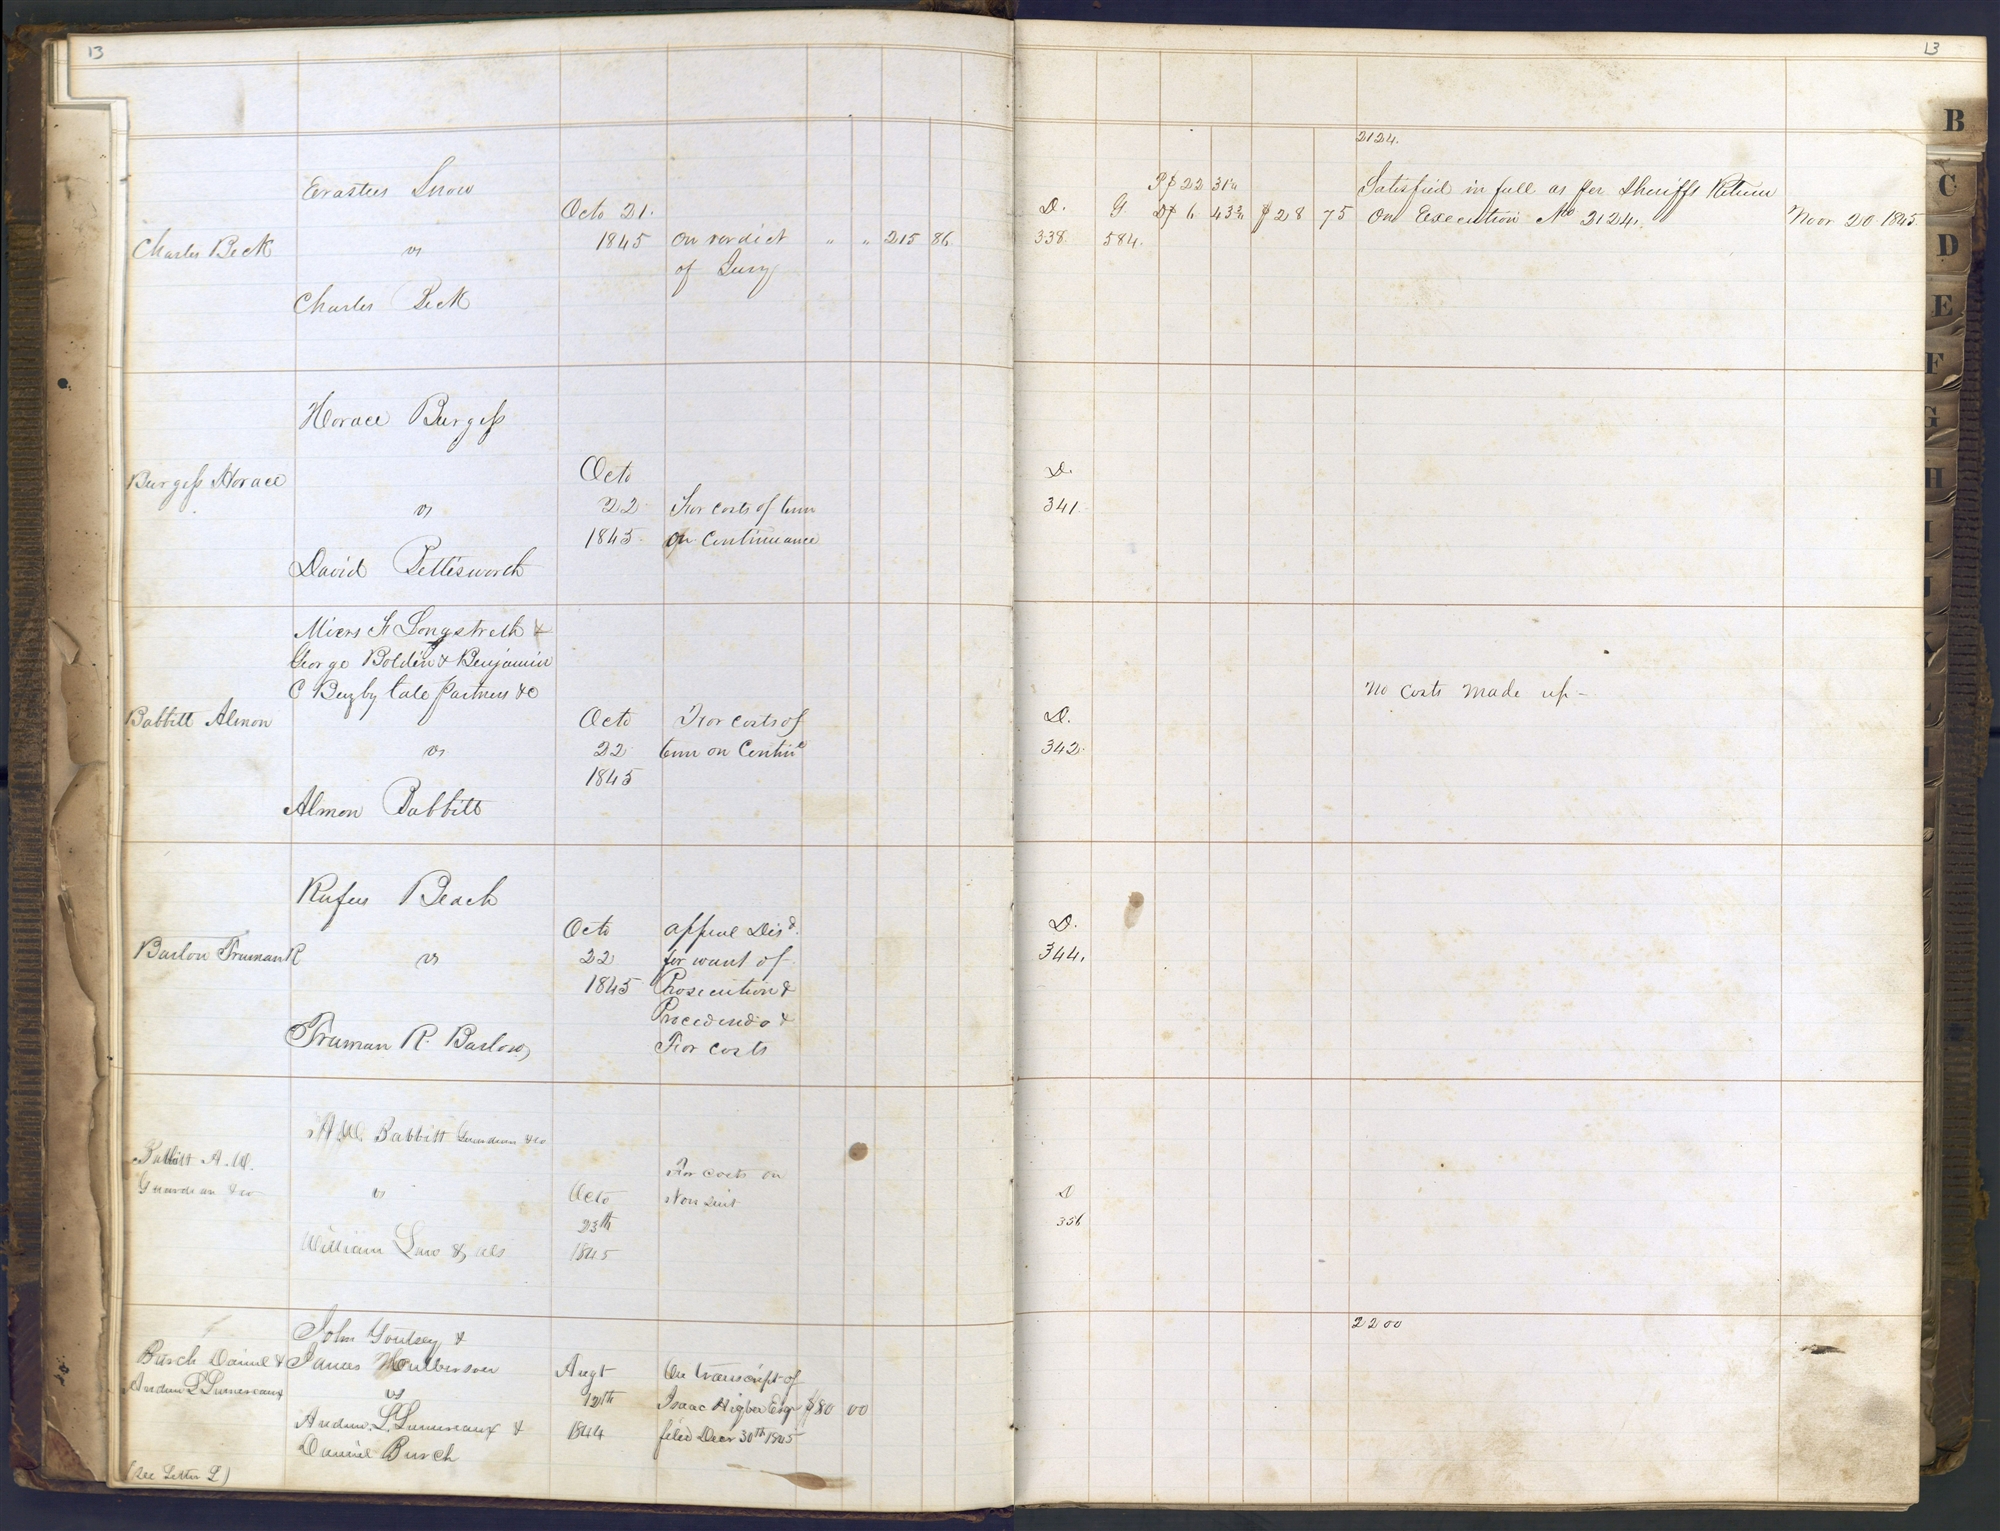 13
Erastus Snow
Octo 21.
Charles Beck
vs
1845
on verdict
" " 215 86
of Jury
Charles Beck
Horace Burgess
Burgess Horace
Octo
vs
22
For costs of term
1845
on Continuance
David Pettisworth
Miers F Longstreth &
George Bolden & Benjamin
C Buzby late partners &c
Babbitt Almon
Octo
For costs of
vs
22
term on Contince
1845
Almon Babbitt
Rufus Beach
Octo
appeal Disd
Barlow Truman R
vs
22
for want of
1845
Prosecution &
Procedendo &
Truman R. Barlow
For costs
A.W. Babbitt Guardian &co
Babbitt A. W.
For costs on
Guardian &co
vs
Octo
Non suit
23th
William Law & als
1845
John &
Burch Daniel &
James
Augt
On transcript of
Andrew L Lamereaux
vs
12th
Isaac Higbee Esqr $80 00
Andrew L. Lamereaux &
1844
filed Decr 30th 1845
Daniel Burch
(See Letter L)
13
2124.
P$ 22 31¼
Satisfied in full as per Sheriffs Return
D. G D$ 6 43¾ $28 75
On Execution No 2124.
Novr 20 1845
338. 584.
D.
341.
No costs made up -
D.
342.
D.
344.
D
356
2200
B
C
D
E
F
G
H
I
J
K
L